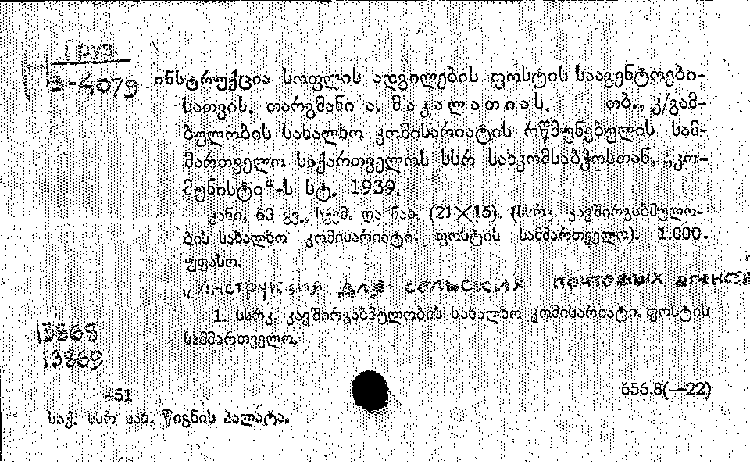 Груз
Э-4079
ინსტრუქცია სოფლის ადგილების ფოსტის სააგენტოები-
სათვის. თარგმანი ა. მაკალათიას. თბ., კ/გამ-
ბულობის სახალხო კომისარიატის რწმუნებულის სამ-
მართველო საქართველოს სსრ სახკომსაბჭოსთან, „კო-
მუნისტი“-ს სტ. 1939.
63 გვ., სქემ. და ნახ. (21×15). (სსრკ. კავშირგაბმულო-
ბის სახალხო კომისარიატი. ფოსტის სამმართველო). 1.000.
უფასო.
Инструкция для сельских почтовых агентов
1. სსრკ. კავშირგაბმულობის სახალხო კომისარიატი. ფოსტის
სამმართველო.
13868
13869
451 656.8(—22)
საქ. სსრ სახ. წიგნის პალატა.